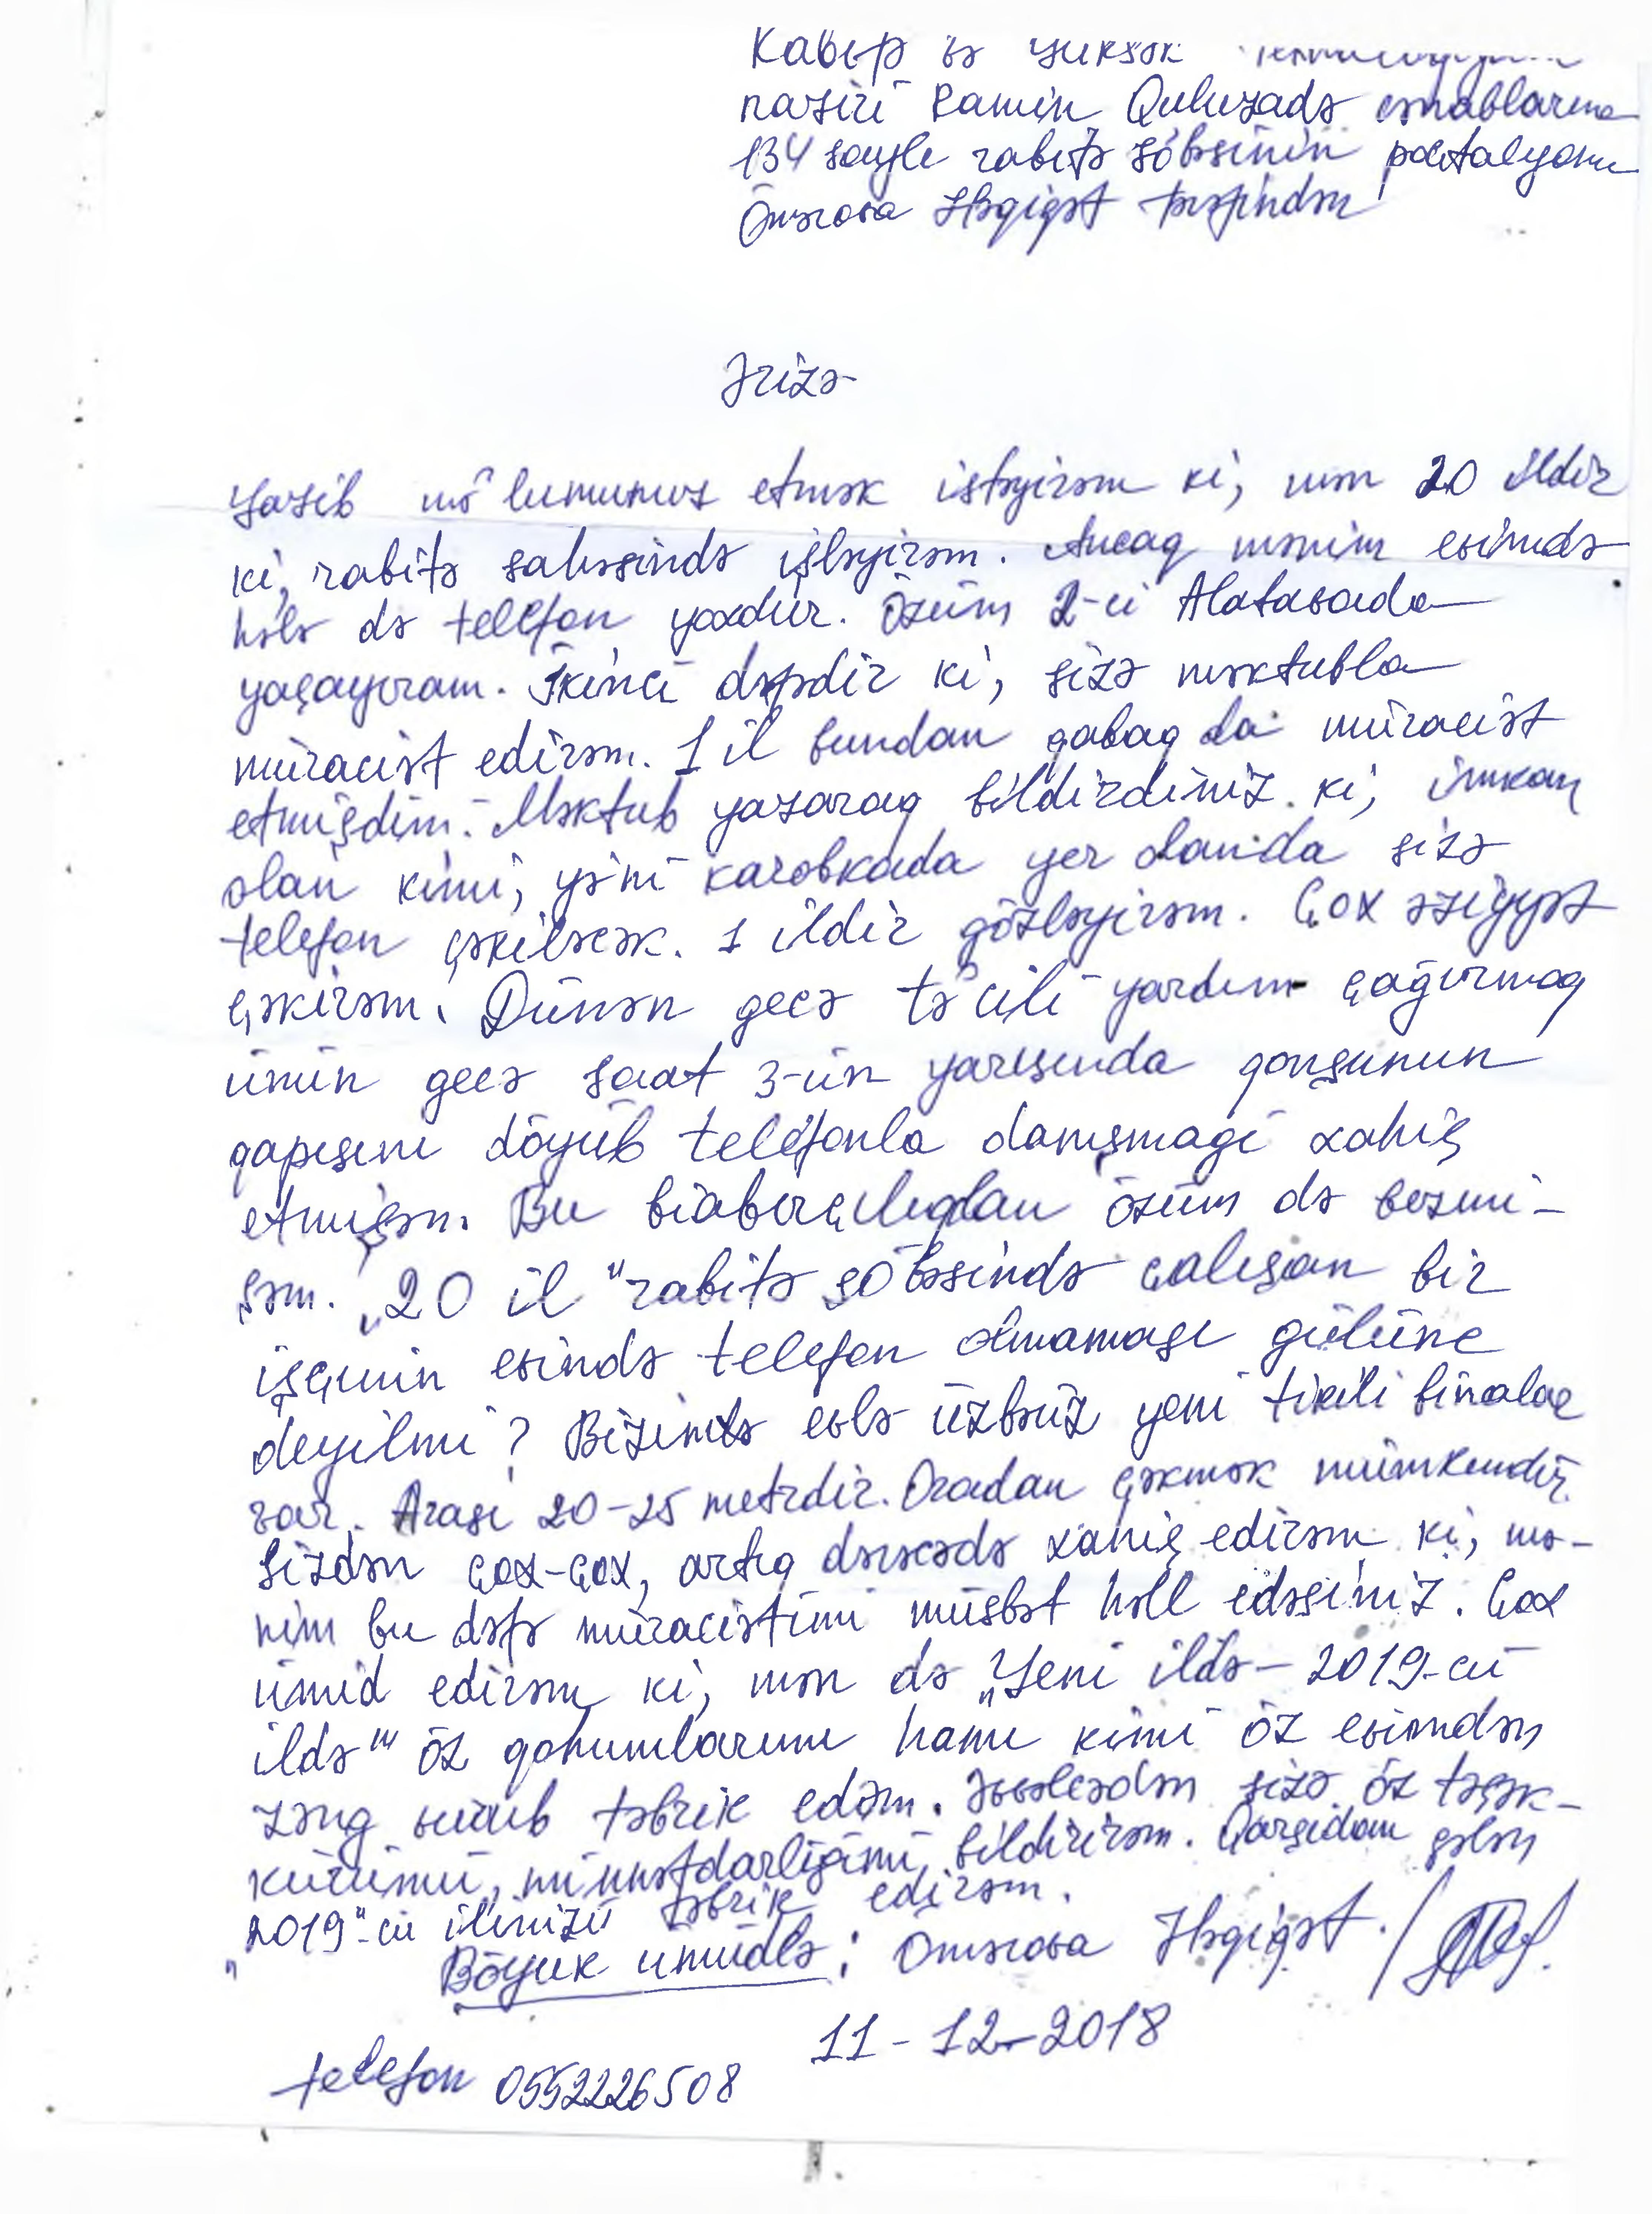 Rabitə və yüksək
naziri Ramin Quluzadə cənablarına
134 saylı rabitə şöbəsinin poçtalyonu
Ömərova Həqiqət tərəfindən
Ərizə
Yazıb mə'lumunuz etmək istəyirəm ki, mən 20 ildir
ki, rabitə sahəsində işləyirəm. Ancaq mənim evimdə
hələ də telefon yoxdur. Özüm 2-ci Alatavada
yaşayıram. İkinci dəfədir ki, sizə məktubla
müraciət edirəm. 1 il bundan qabaq da müraciət
etmişdim. Məktub yazaraq bildirdiniz ki, imkan
olan kimi, yəni karobkada yer olanda sizə
telefon çəkiləcək. 1 ildir gözləyirəm. Çox əziyyət
çəkirəm. Dünən gecə tə'cili yardım çağırmaq
üçün gecə saat 3-ün yarısında qonşunun
qapısını döyüb telefonla danışmağı xahiş
etmişəm. Bu biabırçılıqdan özüm də bezmi-
şəm. "20 il" rabitə şöbəsində çalışan bir
işçinin evində telefon olmaması gülünc
deyilmi? Bizimlə evlə üzbəüz yeni tikili binalar
var. Arası 20-25 metrdir. Oradan çəkmək mümkündür.
Sizdən çox-çox, artıq dərəcədə xahiş edirəm ki, mə-
nim bu dəfə müraciətimi müsbət həll edəsiniz. Çox
ümid edirəm ki, mən də "Yeni ildə - 2019-cu
ildə" öz qohumlarımı hamı kimi öz evimdən
zəng vurub təbrik edəm. Əvvəlcədən sizə öz təşək-
kürümü, minnətdarlığımı bildirirəm. Qarşıdan gələn
"2019"-cu ilinizi təbrik edirəm.
Böyük ümidlə: Ömərova Həqiqət.
11-12-2018
telefon 0552226508